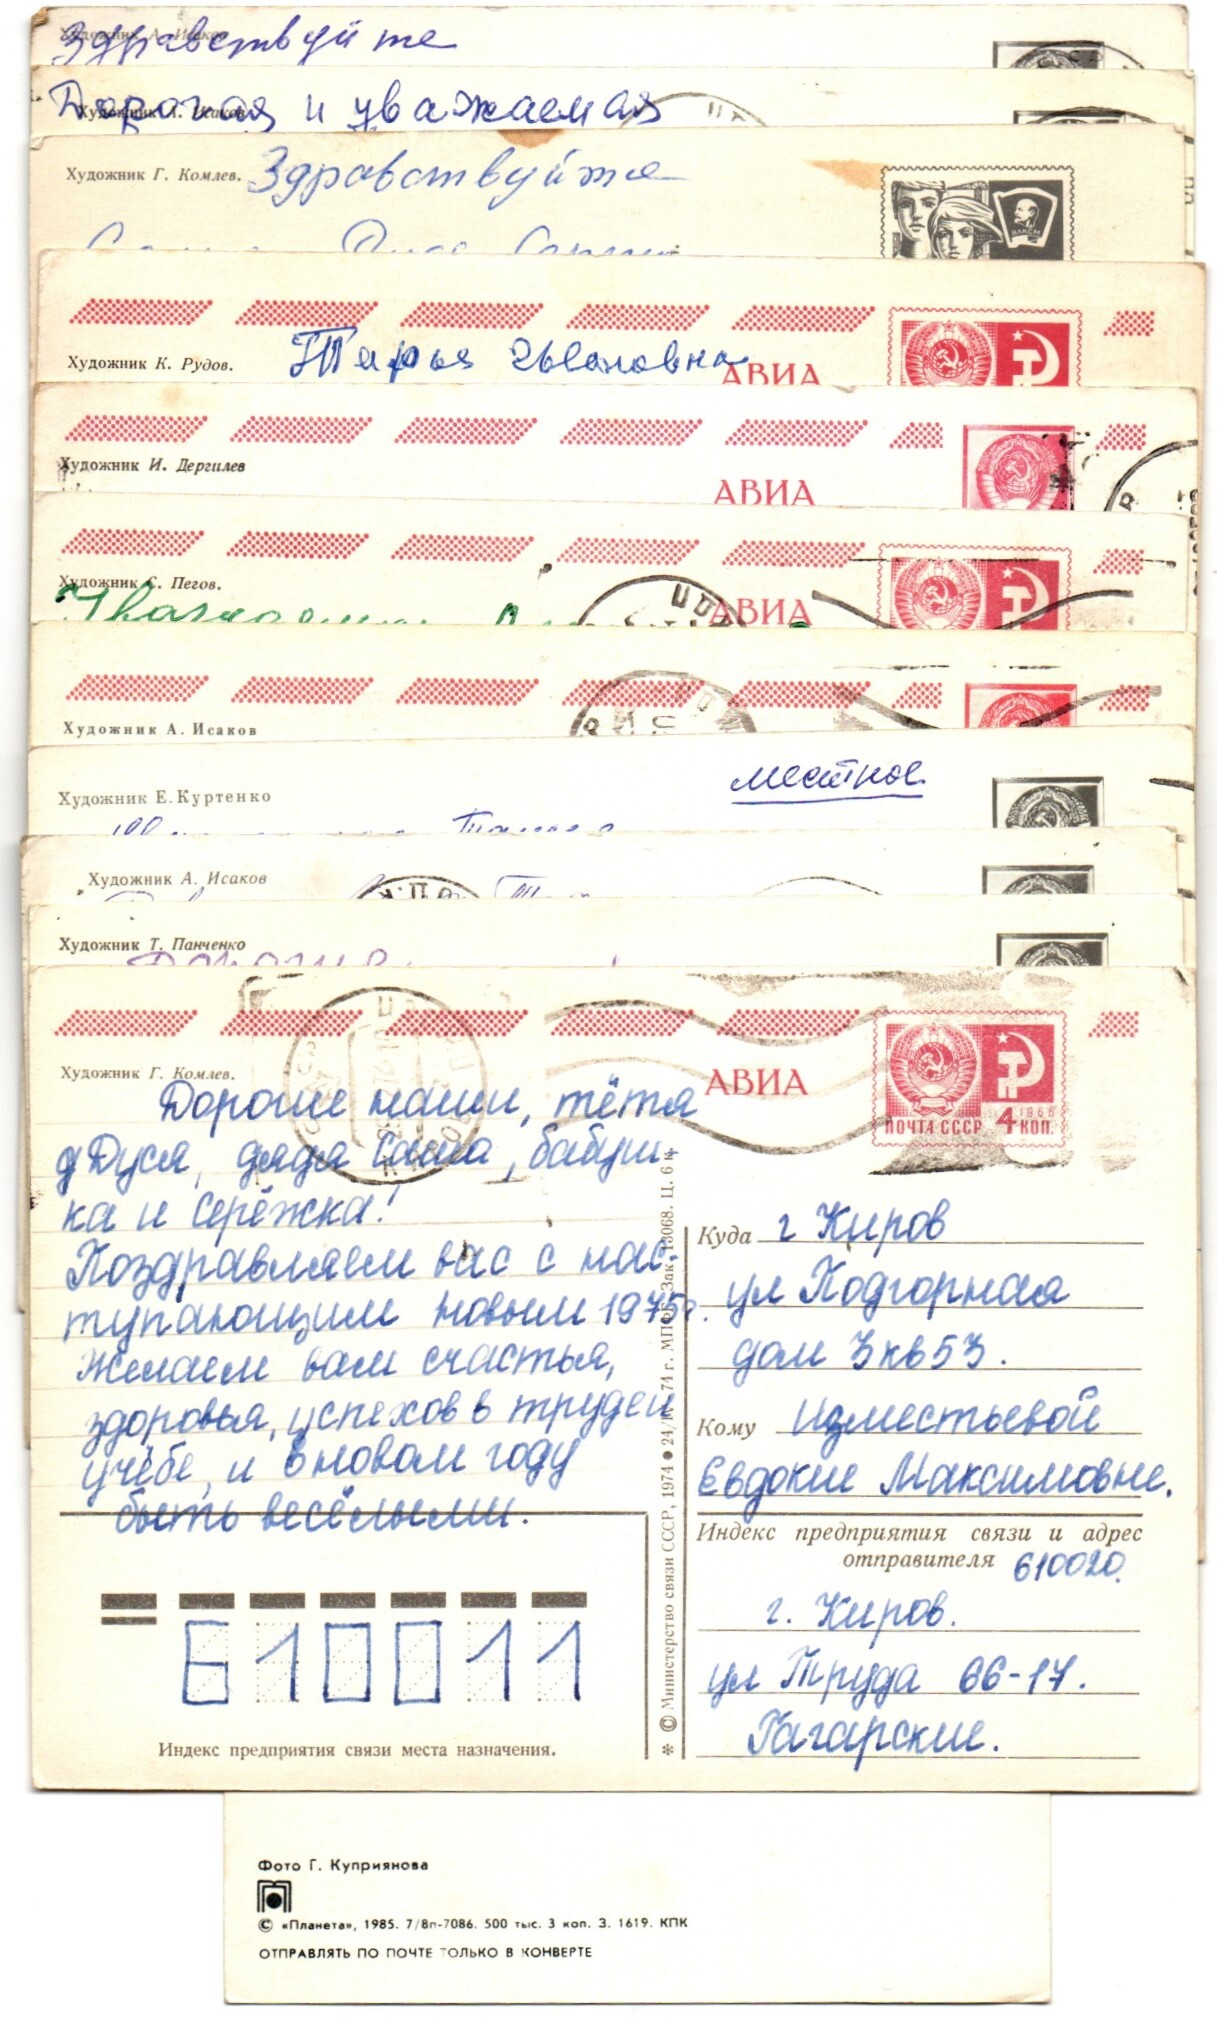 Художник А. Исаков
Здравствуйте
Художник А. Исаков
Дорогая и уважаемая
Художник Г. Комлев. Здравствуйте
ВЛКСМ
Художник К. Рудов.
Дарья Ивановна
АВИА
Художник И. Дергилев
АВИА
Художник С. Пегов.
АВИА
Художник А. Исаков
местное
Художник Е. Куртенко
Художник А. Исаков
Художник Т. Панченко
Художник Г. Комлев.
АВИА
1966
ПОЧТА СССР 4 КОП.
Дорогие наши, тётя
Дуся, дядя Саша, бабуш-
ка и Серёжка!
Поздравляем вас с нас-
тупающим новым 1975г.
Желаем вам счастья,
здоровья, успехов в труде и
учёбе, и в новом году
быть весёлыми.
Куда г Киров
ул Подгорная
дом 3 кв 53.
Кому Изместьевой
Евдокие Максимовне.
Индекс предприятия связи и адрес
отправителя 610020.
г. Киров.
ул Труда 66-17.
Гагарские.
610011
Индекс предприятия связи места назначения.
* © Министерство связи СССР, 1974 ● 24/IV 74 г. МПФГ. Зак. 13068. Ц. 6 к.
Фото Г. Куприянова
© «Планета», 1985. 7/8п-7086. 500 тыс. 3 коп. З. 1619. КПК
ОТПРАВЛЯТЬ ПО ПОЧТЕ ТОЛЬКО В КОНВЕРТЕ